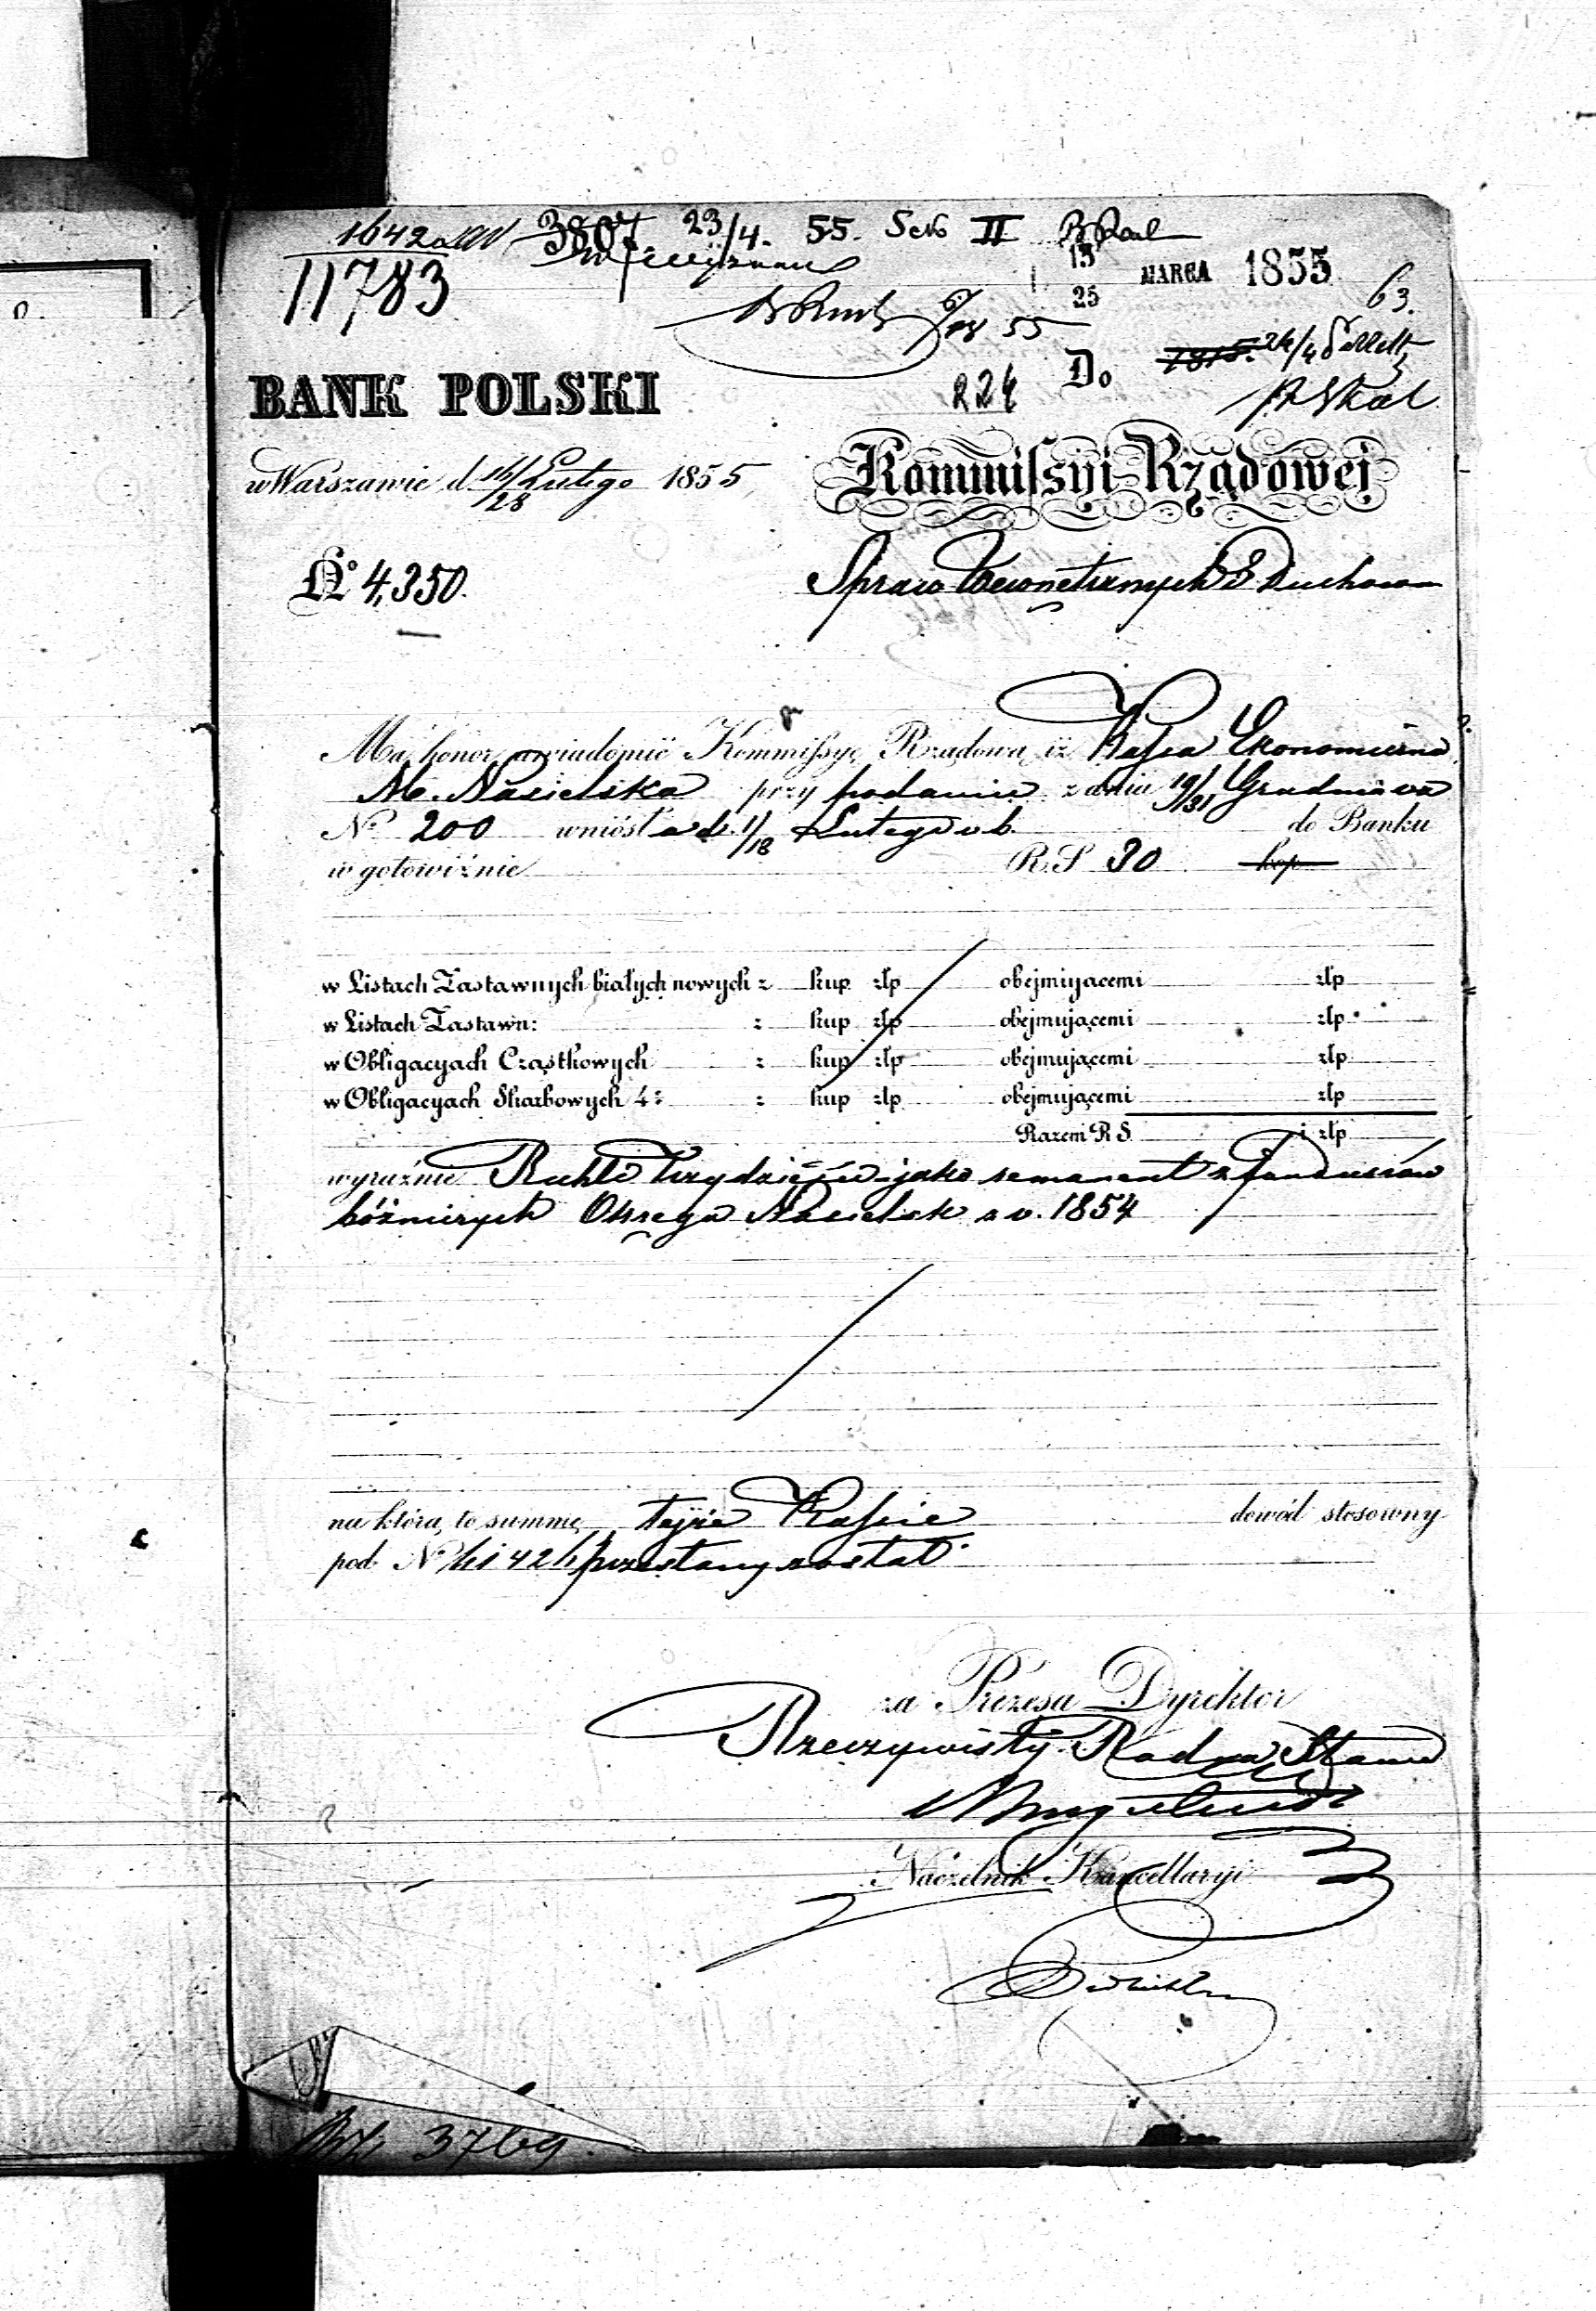 1642
11783
3807 23/4. 55. Sek II
13
25 MARCA 1855
63.
55
24/4
224
Do
BANK POLSKI
Kommissyi Rządowej
w Warszawie d. 16/28 Lutego 1855
Spraw Wewnętrznych & Duchown
No 4,350.
Ma honor uwiadomić Kommissyę Rządową iż Kassa Ekonomiczna
M. Nasielska przy podaniu z dnia 19/31 Grudnia
No 200 wniosła d. Lutego b. do Banku
w gotowiźnie R.S 30 kop
w Listach Zastawnych białych nowych z kup złp obejmiyącemi złp
w Listach Zastawn: z kup złp obejmującemi złp
w Obligacyach Cząstkowych z kup złp obejmującemi złp
w Obligacyach Skarbowych 4: z kup złp obejmującemi złp
Razem R S. i złp
wyraźnie Rubli Trzydzieści jako remanent z funduszów
bóżniczych Okręgu Nasielsk z r. 1854
na którą to summę tejże Kassie dowód stosowny
pod No przesłany został
za Prezesa Dyrektor
Rzeczywisty Radca Stanu
Naczelnik Kancellaryi
3769.